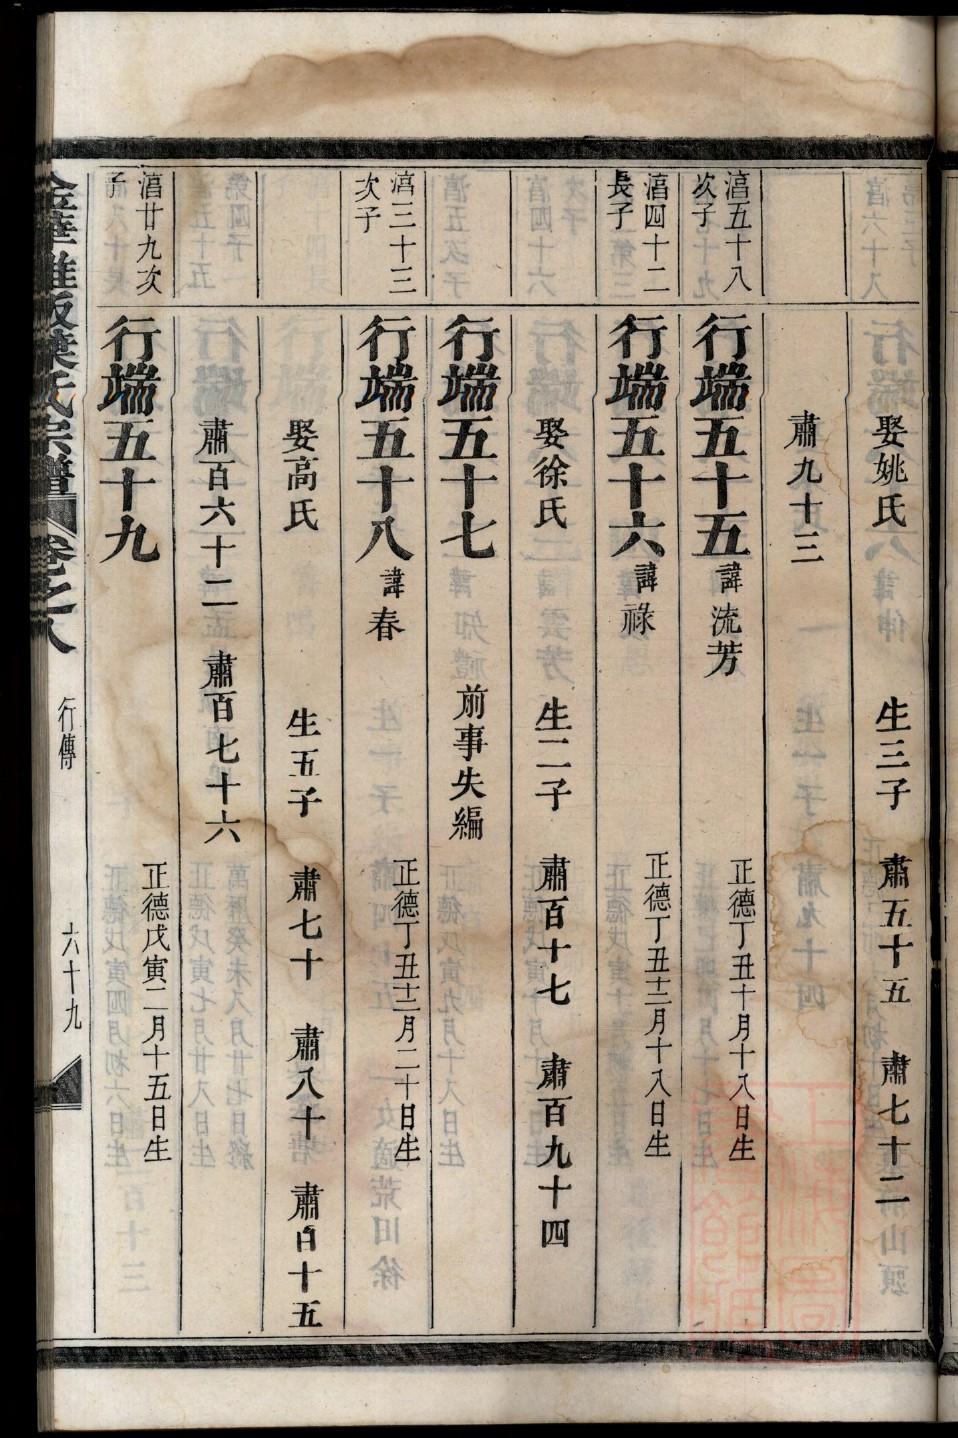 娶姚氏 生三子 肅五十五 肅七十二
肅九十三
湻五十八次子
行端五十五 諱流芳 正德丁丑十月十八日生
湻四十二長子
行端五十六 諱祿 正德丁丑十二月十八日生
娶徐氏 生二子 肅百十七 肅百九十四
行端五十七 前事失編
湻三十三次子
行端五十八 諱春 正德丁丑十二月二十日生
娶高氏 生五子 肅七十 肅八十 肅百十五
肅百六十二 肅百七十六
湻廿九次子
行端五十九 正德戊寅二月十五日生
葉氏宗譜 卷之八 行傳 六十九